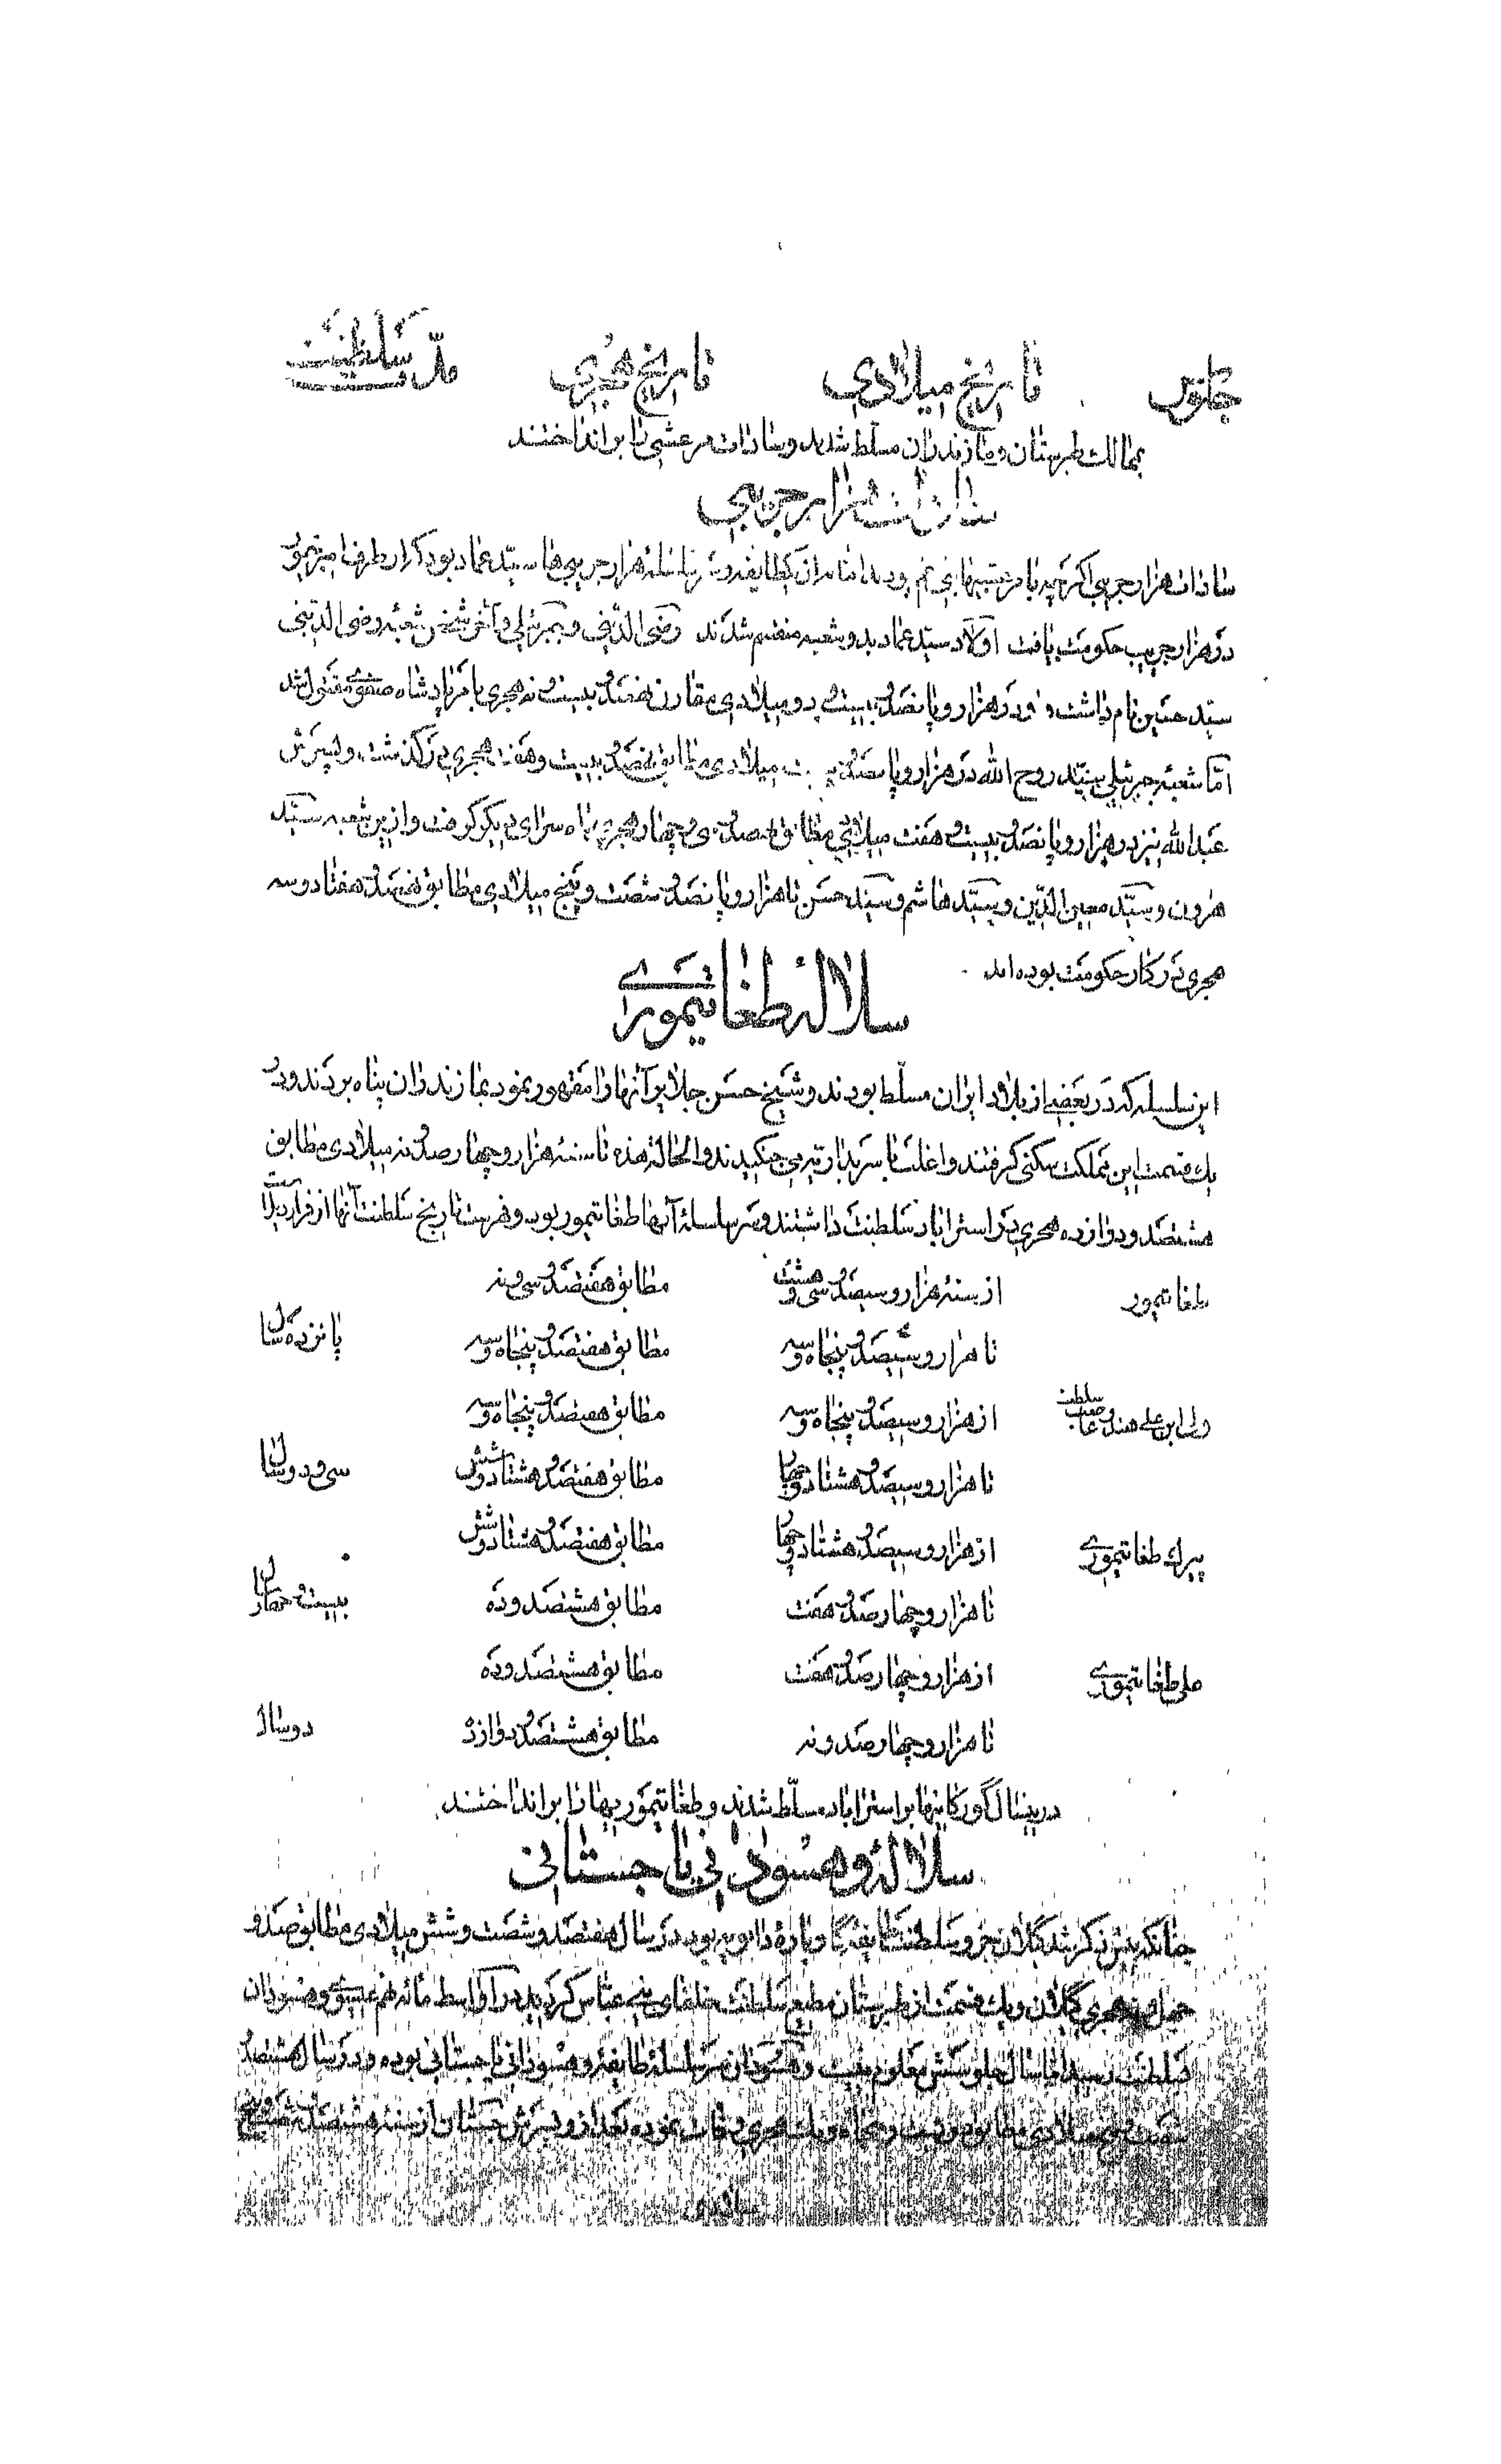 جلوس تاریخ میلادی تاریخ هجری مدّت سلطنت
بممالك طبرستان و مازندران مسلّط شدید و سادات مرعشی را برانداختند
سادات هزار جریبی
سادات هزار جریبی اگرچه با مرعشیها بنی عم بودند امّا سر سلسلهٔ هزار جریبی‌ها سیّد عماد بود که از طرف امیر تیمور
در هزار جریب حکومت یافت اولاد سیّد عماد بدو شعبه منقسم شدند رضی الدّینی و جبرئیلی و آخر شخص شعبهٔ رضی الدّینی
سیّد حسین نام داشت و در هزار و پانصد و بیست و دو میلادی مقارن نهصد و بیست و نه هجری بامر پادشاه صفوی مقتول شد
امّا شعبهٔ جبرئیلی سیّد روح الله در هزار و پانصد و بیست میلادی مطابق نهصد و بیست و هفت هجری درگذشت و پسرش
عبد الله نیز در هزار و پانصد و بیست و هفت میلادی مطابق نهصد و سی و چهار هجری راه سرای دیگر گرفت و ازین شعبه سیّد
هرون و سیّد معین الدّین و سیّد هاشم و سیّد حسن تا هزار و پانصد و شصت و پنج میلادی مطابق نهصد و هفتاد و سه
هجری در کار حکومت بوده‌اند
سلالهٔ طغا تیموری
این سلسله که در بعضی از بلاد ایران مسلّط بودند و شیخ حسن جلایر آنها را مقهور نمود بمازندران پناه بردند و در
یك قسمت این مملکت سکنی گرفتند و اغلب با سربداریّه می جنگیدند و الحالة هذه تا سنهٔ هزار و چهار صد و نه میلادی مطابق
هشتصد و دوازده هجری در استراباد سلطنت داشتند و سر سلسلهٔ آنها طغا تیمور بود و فهرست تاریخ سلطنت آنها از قرار ذیل است
طغا تیمور از سنهٔ هزار و سیصد و سی و هشت مطابق هفتصد و سی و نه
تا هزار و سیصد و پنجاه و سه مطابق هفتصد و پنجاه و سه پانزده سال
ابن علی هندو سلطنت از هزار و سیصد و پنجاه و سه مطابق هفتصد و پنجاه و سه
تا هزار و سیصد و هشتاد و چهار مطابق هفتصد و هشتاد و شش سی و دو سال
پیرك طغا تیموری از هزار و سیصد و هشتاد و چهار مطابق هفتصد و هشتاد و شش
تا هزار و چهار صد و هفت مطابق هشتصد و ده بیست و چهار سال
علی طغا تیموری از هزار و چهار صد و هفت مطابق هشتصد و ده
تا هزار و چهار صد و نه مطابق هشتصد و دوازده دو سال
درینسال گورکانیها بر استراباد مسلّط شدند و طغا تیموریها را برانداختند
سلالهٔ وهسودانی یا جستانی
چنانکه پیش ذکر شد گیلان جزو سلطنت طایفهٔ گاوبارهٔ دابویه بود در سال هفتصد و شصت و شش میلادی مطابق صد و
چهل و نه هجری گیلان و یك قسمت از طبرستان مطیع سلطنت خلفای بنی عبّاس گردید در اواسط مائهٔ نهم عیسوی وهسودان
بسلطنت رسید امّا سال جلوسش معلوم نیست وهسودان سر سلسلهٔ طایفهٔ وهسودانی یا جستانی بوده و در سال هشتصد و
شصت و پنج میلادی مطابق دویست و پنجاه و یك هجری وفات نموده بعد از و پسرش جستان از سنهٔ هشتصد و شصت و پنج